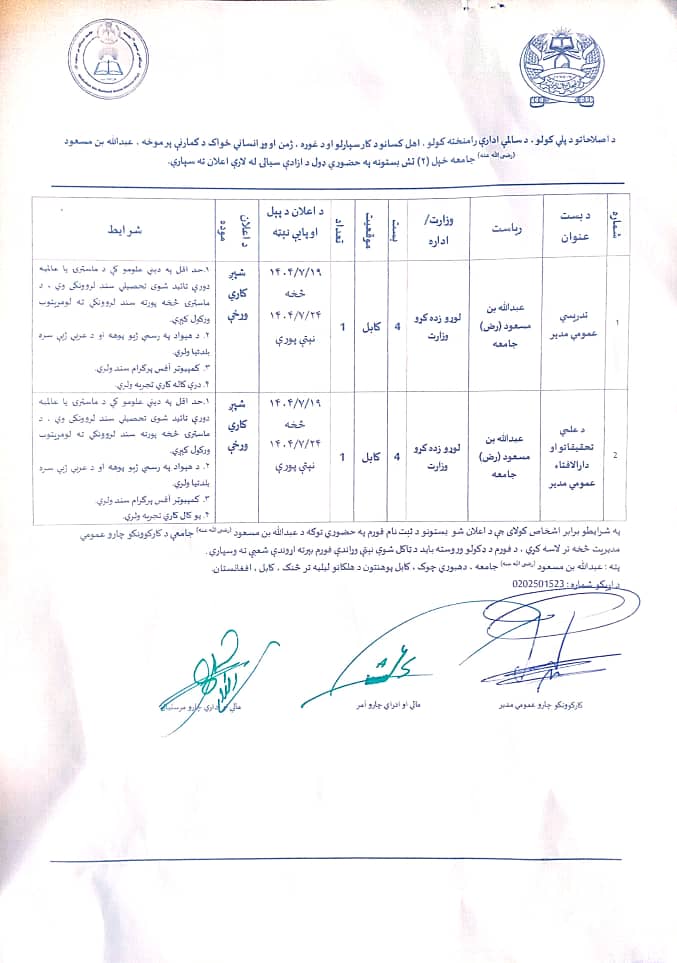 د اصلاحاتو د پلي کولو ، د سالمې ادارې رامنځته کولو ، اهل کسانو د کار سپارلو او د غوره ، ژمن او وړ انساني ځواک د ګمارنې پر موخه ، عبدالله بن مسعود
(رضی الله عنه) جامعه خپل (۲) تش بستونه په حضوري ډول د ازادې سیالۍ له لارې اعلان ته سپاري.
شماره
د بست عنوان
ریاست
وزارت/ اداره
بست
موقعیت
تعداد
د اعلان د پیل او پایې نېټه
د اعلان موده
شرایط
1
تدریسي عمومي مدیر
عبدالله بن مسعود (رض) جامعه
لوړو زده کړو وزارت
4
کابل
1
۱۴۰۴/۷/۱۹
څخه
۱۴۰۴/۷/۲۴
نېټې پورې
شپږ کاري ورځې
۱. حد اقل په دیني علومو کې د ماسترۍ یا عالمیه
دورې تائید شوی تحصیلي سند لرونکی وي ، د
ماسترۍ څخه پورته سند لرونکي ته لومړیتوب
ورکول کېږي.
۲. د هېواد په رسمي ژبو پوهه او د عربي ژبې سره
بلدتیا ولري.
۳. کمپیوټر آفس پرګرام سند ولري.
۴. درې کاله کاري تجربه ولري.
2
د علمي تحقیقاتو او دارالافتاء عمومي مدیر
عبدالله بن مسعود (رض) جامعه
لوړو زده کړو وزارت
4
کابل
1
۱۴۰۴/۷/۱۹
څخه
۱۴۰۴/۷/۲۴
نېټې پورې
شپږ کاري ورځې
۱. حد اقل په دیني علومو کې د ماسترۍ یا عالمیه
دورې تائید شوی تحصیلي سند لرونکی وي ، د
ماسترۍ څخه پورته سند لرونکي ته لومړیتوب
ورکول کېږي.
۲. د هېواد په رسمي ژبو پوهه او د عربي ژبې سره
بلدتیا ولري.
۳. کمپیوټر آفس پرګرام سند ولري.
۴. یو کال کاري تجربه ولري.
په شرایطو برابر اشخاص کولای چې د اعلان شو بستونو د ثبت نام فورم په حضوري توګه د عبدالله بن مسعود (رضی الله عنه) جامعې د کارکوونکو چارو عمومي
مدیریت څخه تر لاسه کړي ، د فورم د ډکولو وروسته باید د ټاکل شوي نېټې وړاندې فورم بېرته اړوندې شعبې ته وسپاري.
پته : عبدالله بن مسعود (رضی الله عنه) جامعه ، دهبوري چوک ، کابل پوهنتون د هلکانو لیلیه تر څنګ ، کابل ، افغانستان.
د اړیکو شماره : 0202501523
کارکوونکو چارو عمومي مدیر
مالي او اداري چارو آمر
مالي او اداري چارو مرستیال